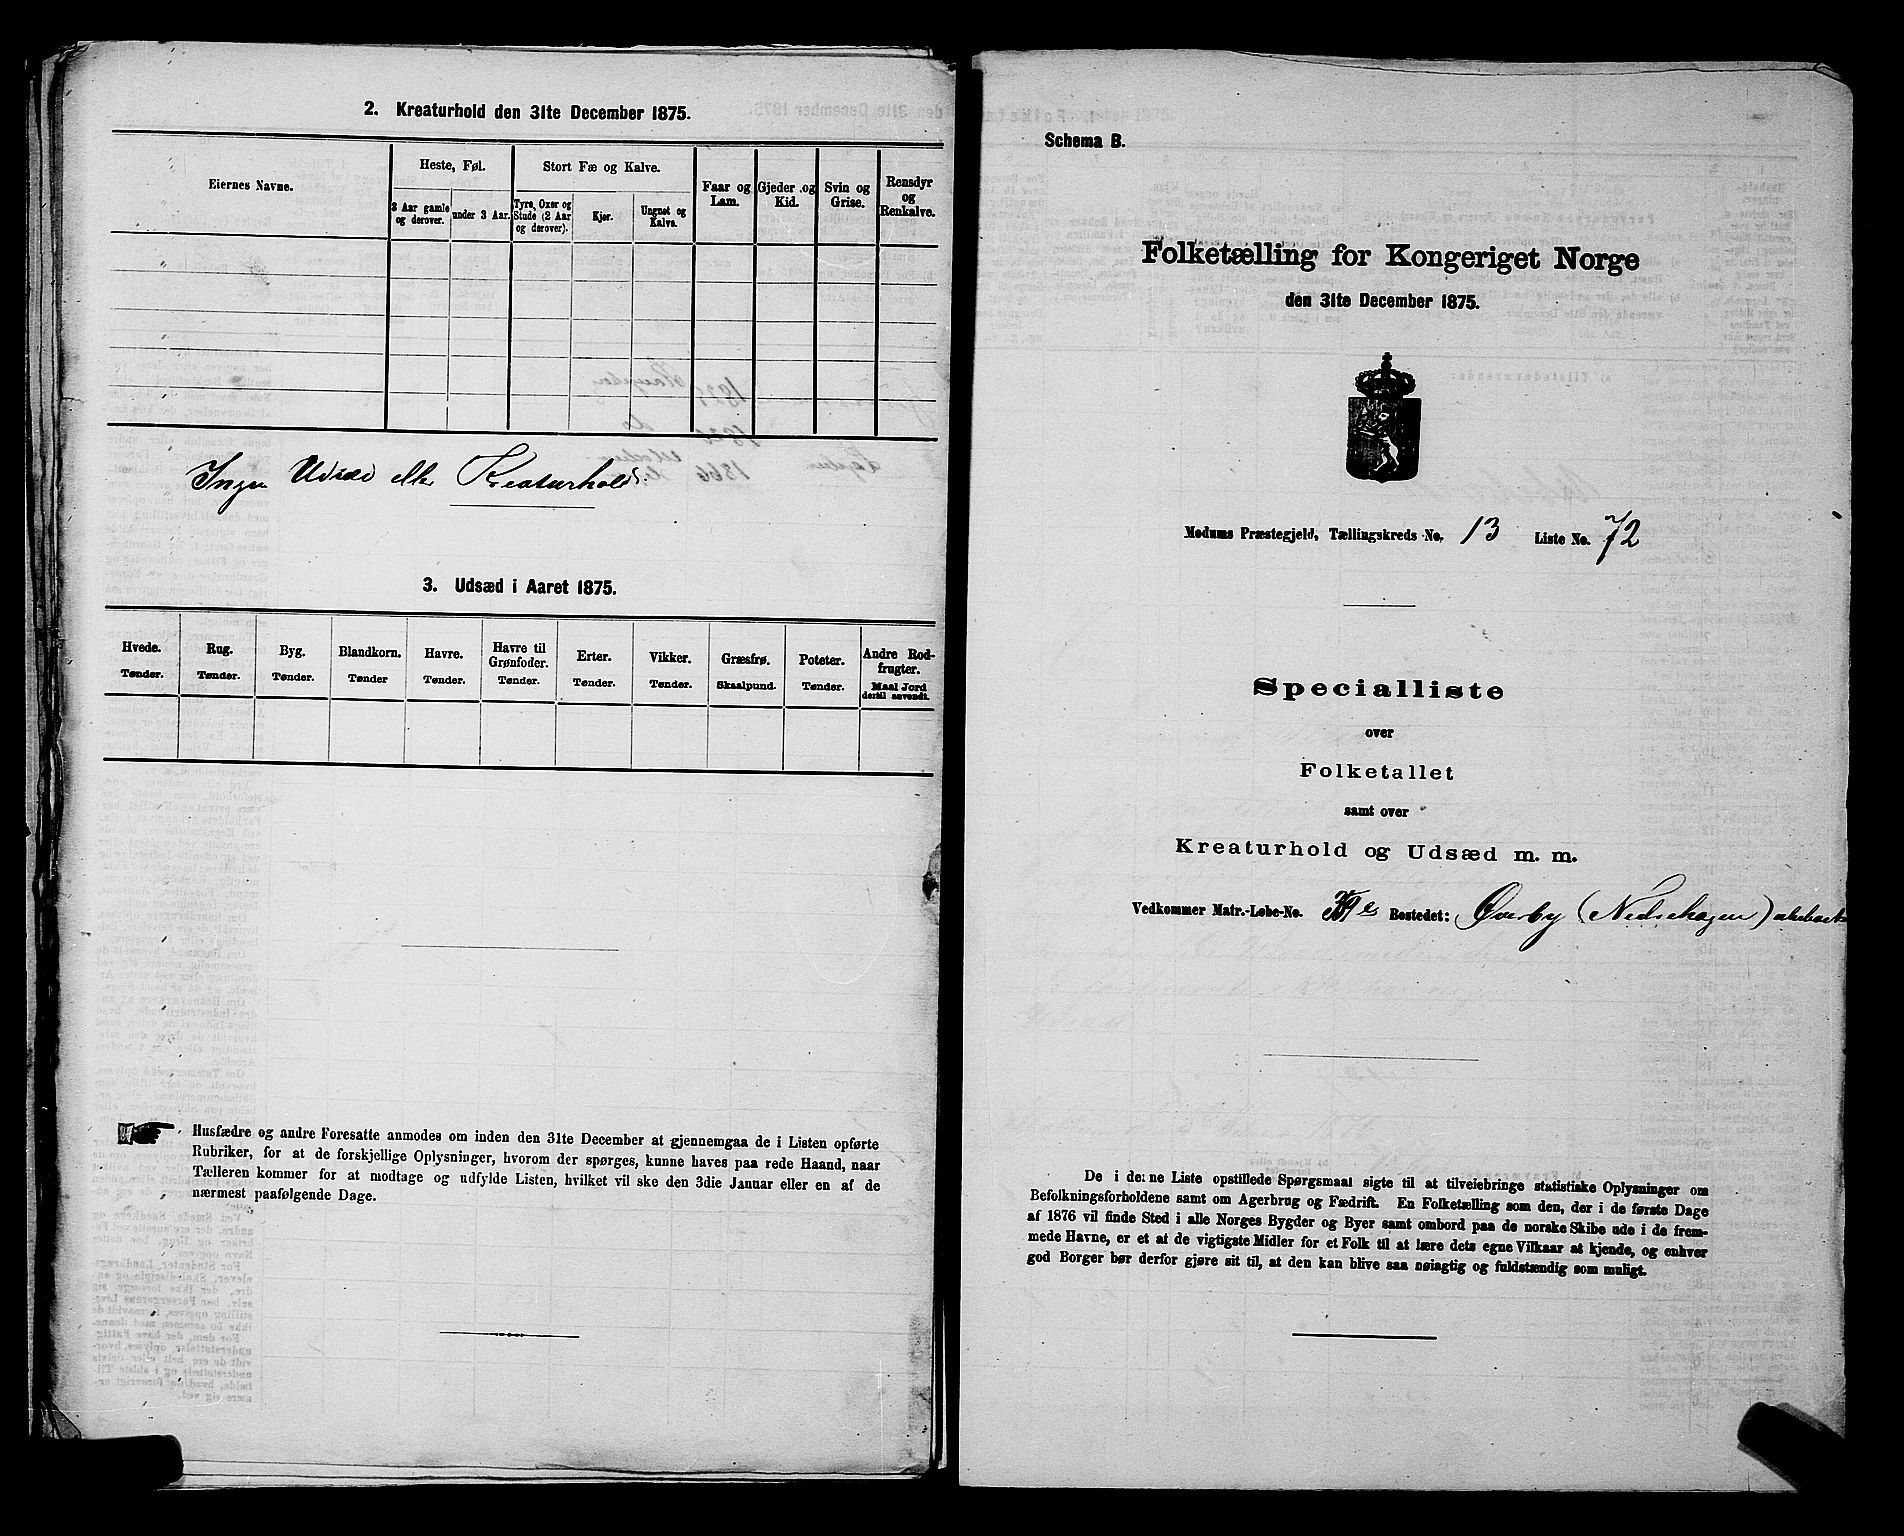 2. Kreaturhold den 31te December 1875.
Eiernes Navne.
Heste, Føl.
3 Aar gamle og derover.
under 3 Aar.
Stort Fæ og Kalve.
Tyre, Oxer og Stude (2 Aar og derover).
Kjør.
Ungnøt og Kalve.
Faar og Lam.
Gjeder og Kid.
Svin og Grise.
Rensdyr og Renkalve.
Ingen Udsæd eller Kreaturhold.
3. Udsæd i Aaret 1875.
Hvede. Tønder.
Rug. Tønder.
Byg. Tønder.
Blandkorn. Tønder
Havre. Tønder.
Havre til Grønfoder. Tønder.
Erter. Tønder.
Vikker. Tønder.
Græsfrø. Skaalpund.
Poteter. Tønder.
Andre Rodfrugter. Maal Jord dertil anvendt.
Husfædre og andre Foresatte anmodes om inden den 31te December at gjennemgaa de i Listen opførte
Rubriker, for at de forskjellige Oplysninger, hvorom der spørges, kunne haves paa rede Haand, naar
Tælleren kommer for at modtage og udfylde Listen, hvilket vil ske den 3die Januar eller en af de
nærmest paafølgende Dage.
Schema B.
Folketælling for Kongeriget Norge
den 31te December 1875.
Modums Præstegjeld, Tællingskreds No. 13 Liste No. 72
Specialliste
over
Folketallet
samt over
Kreaturhold og Udsæd m. m.
Vedkommer Matr.-Løbe-No. Bostedet: Øverby (Nedrehagen)
De i denne Liste opstillede Spørgsmaal sigte til at tilveiebringe statistiske Oplysninger om
Befolkningsforholdene samt om Agerbrug og Fædrift. En Folketælling som den, der i de første Dage
af 1876 vil finde Sted i alle Norges Bygder og Byer samt ombord paa de norske Skibe ude i de frem-
mede Havne, er et af de vigtigste Midler for et Folk til at lære dets egne Vilkaar at kjende, og enhver
god Borger bør derfor gjøre sit til, at den kan blive saa nøiagtig og fuldstændig som muligt.